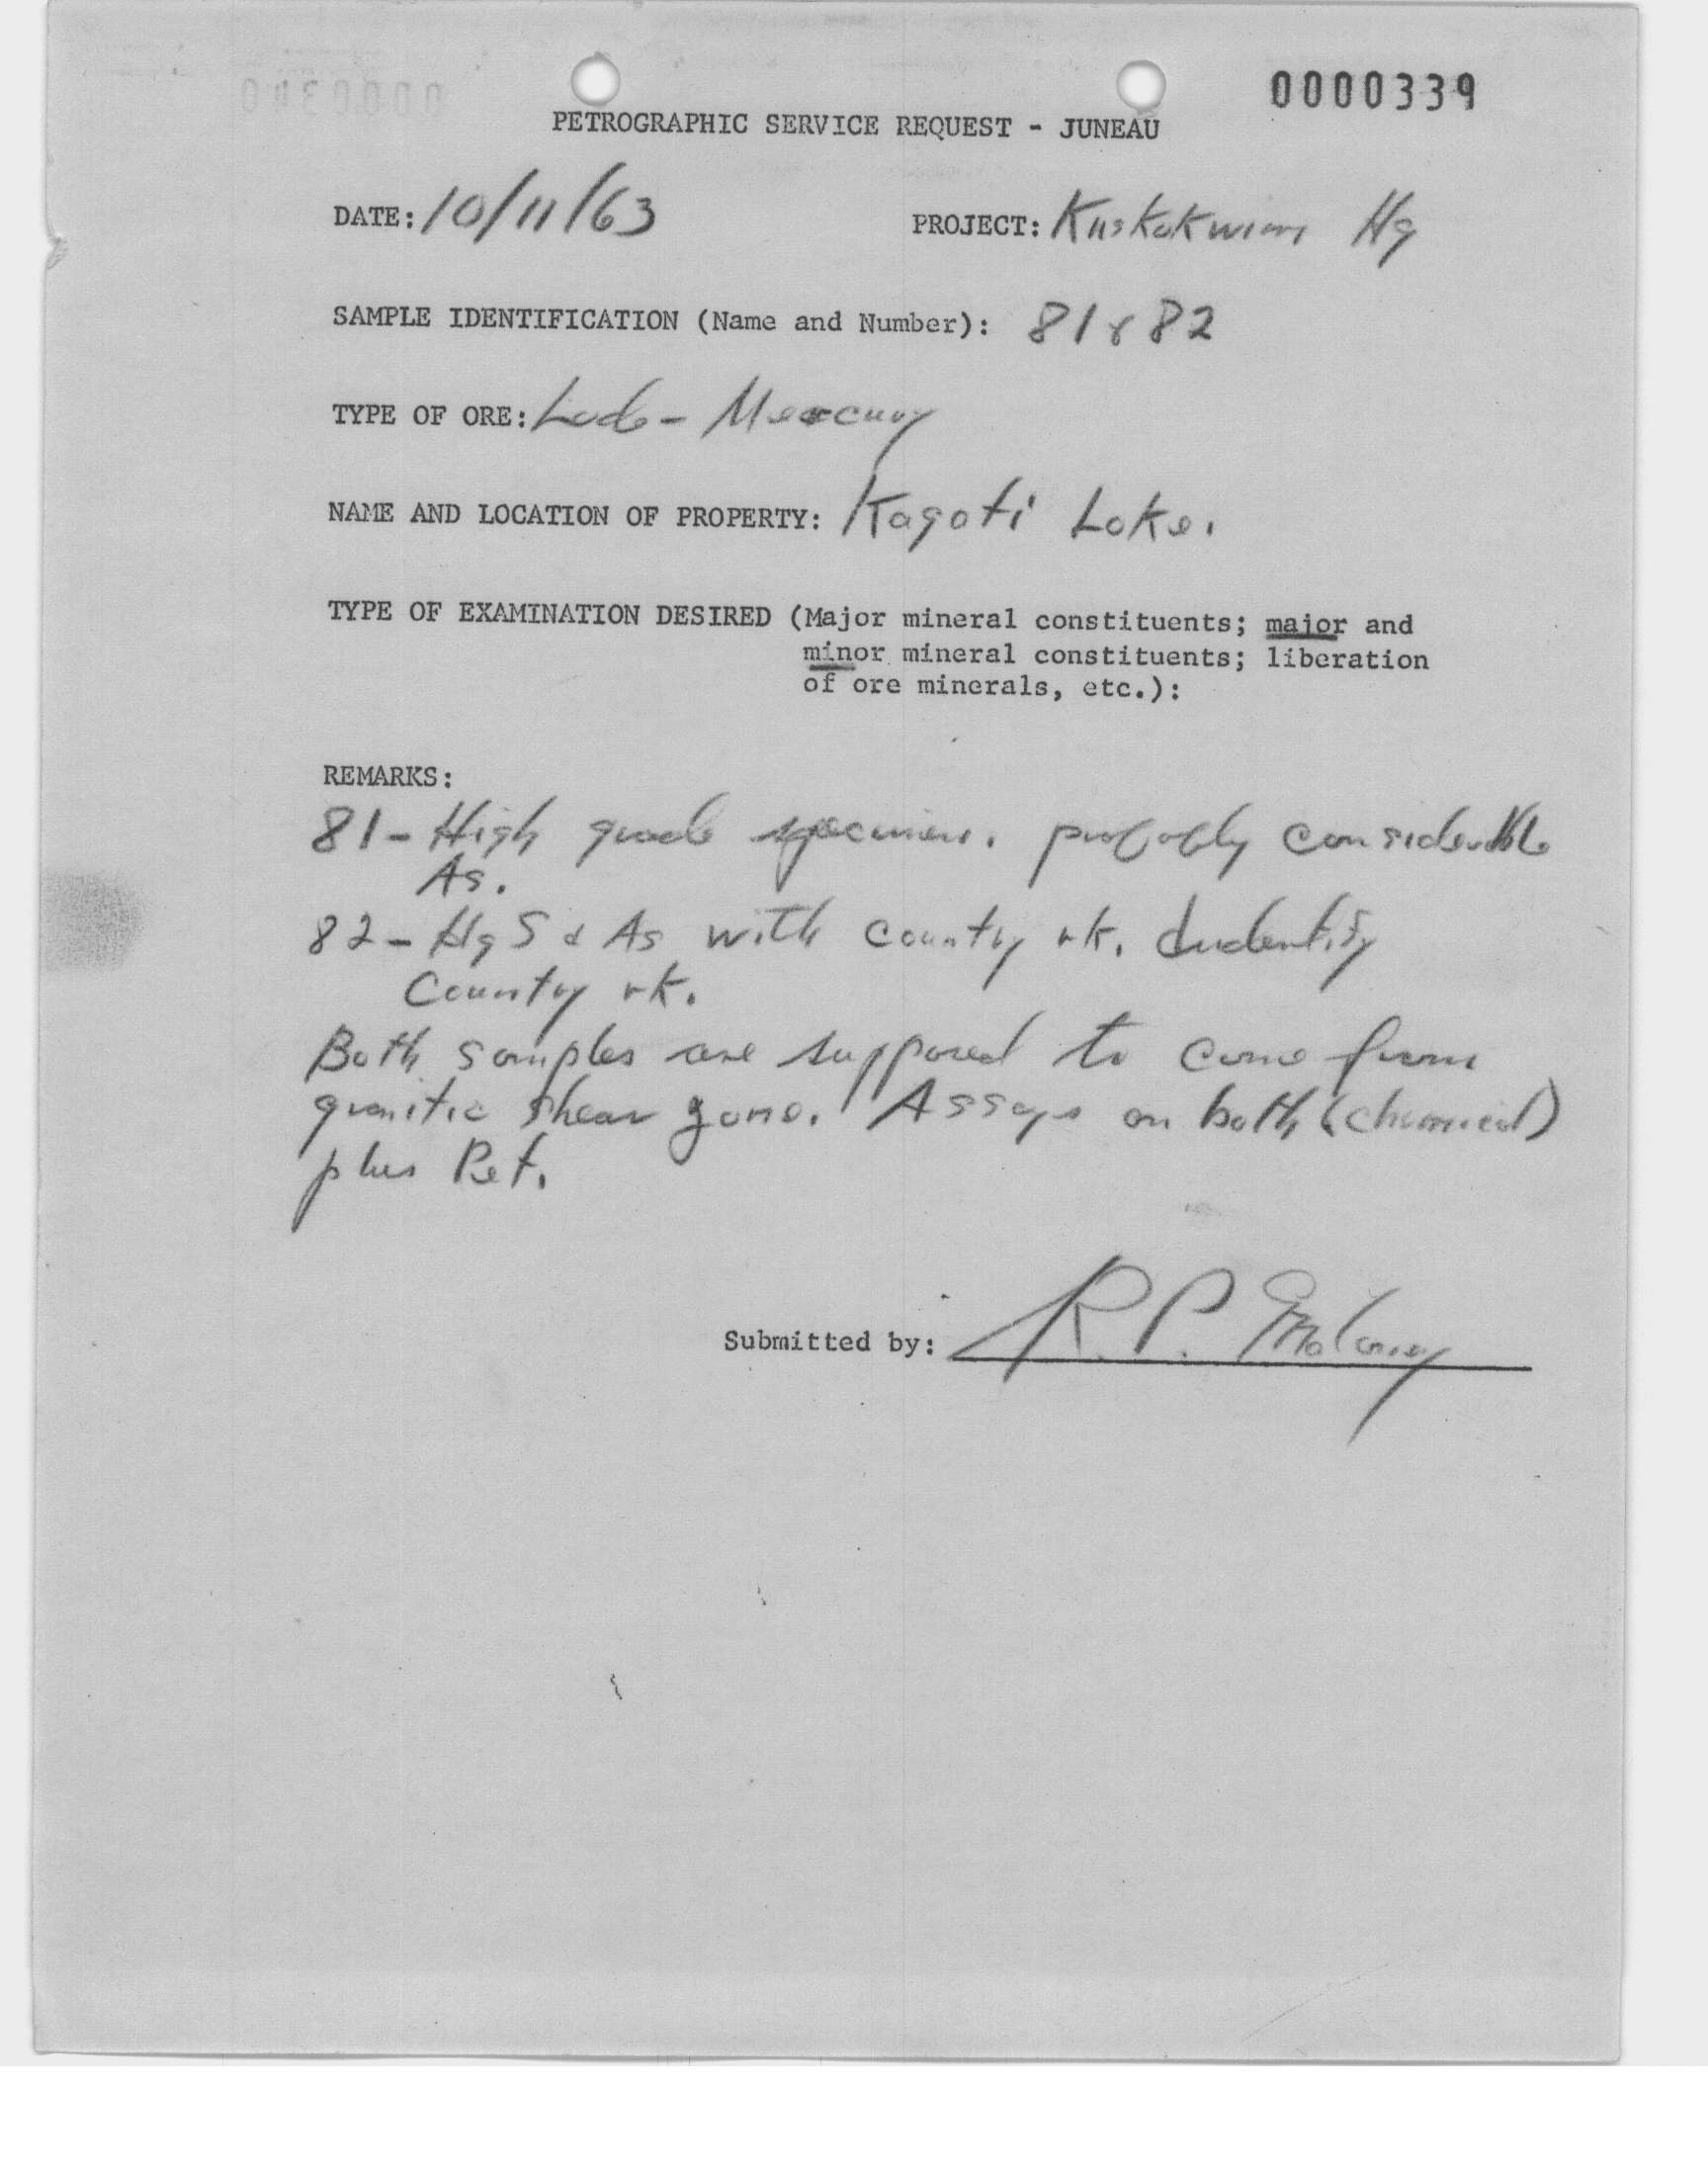 0000339
PETROGRAPHIC SERVICE REQUEST - JUNEAU
DATE: 10/11/63 PROJECT: Kuskokwim Hg
SAMPLE IDENTIFICATION (Name and Number): 81 & 82
TYPE OF ORE: Lode - Mercury
NAME AND LOCATION OF PROPERTY: Kagati Lake.
TYPE OF EXAMINATION DESIRED (Major mineral constituents; major and
minor mineral constituents; liberation
of ore minerals, etc.):
REMARKS:
81 - High grade specimen. probably considerable
As.
82 - HgS & As with country rk.
Country rk.
Both samples are supposed to come from
granitic shear zone. Assays on both (chemical)
plus Pet.
Submitted by: R.P. Maloney